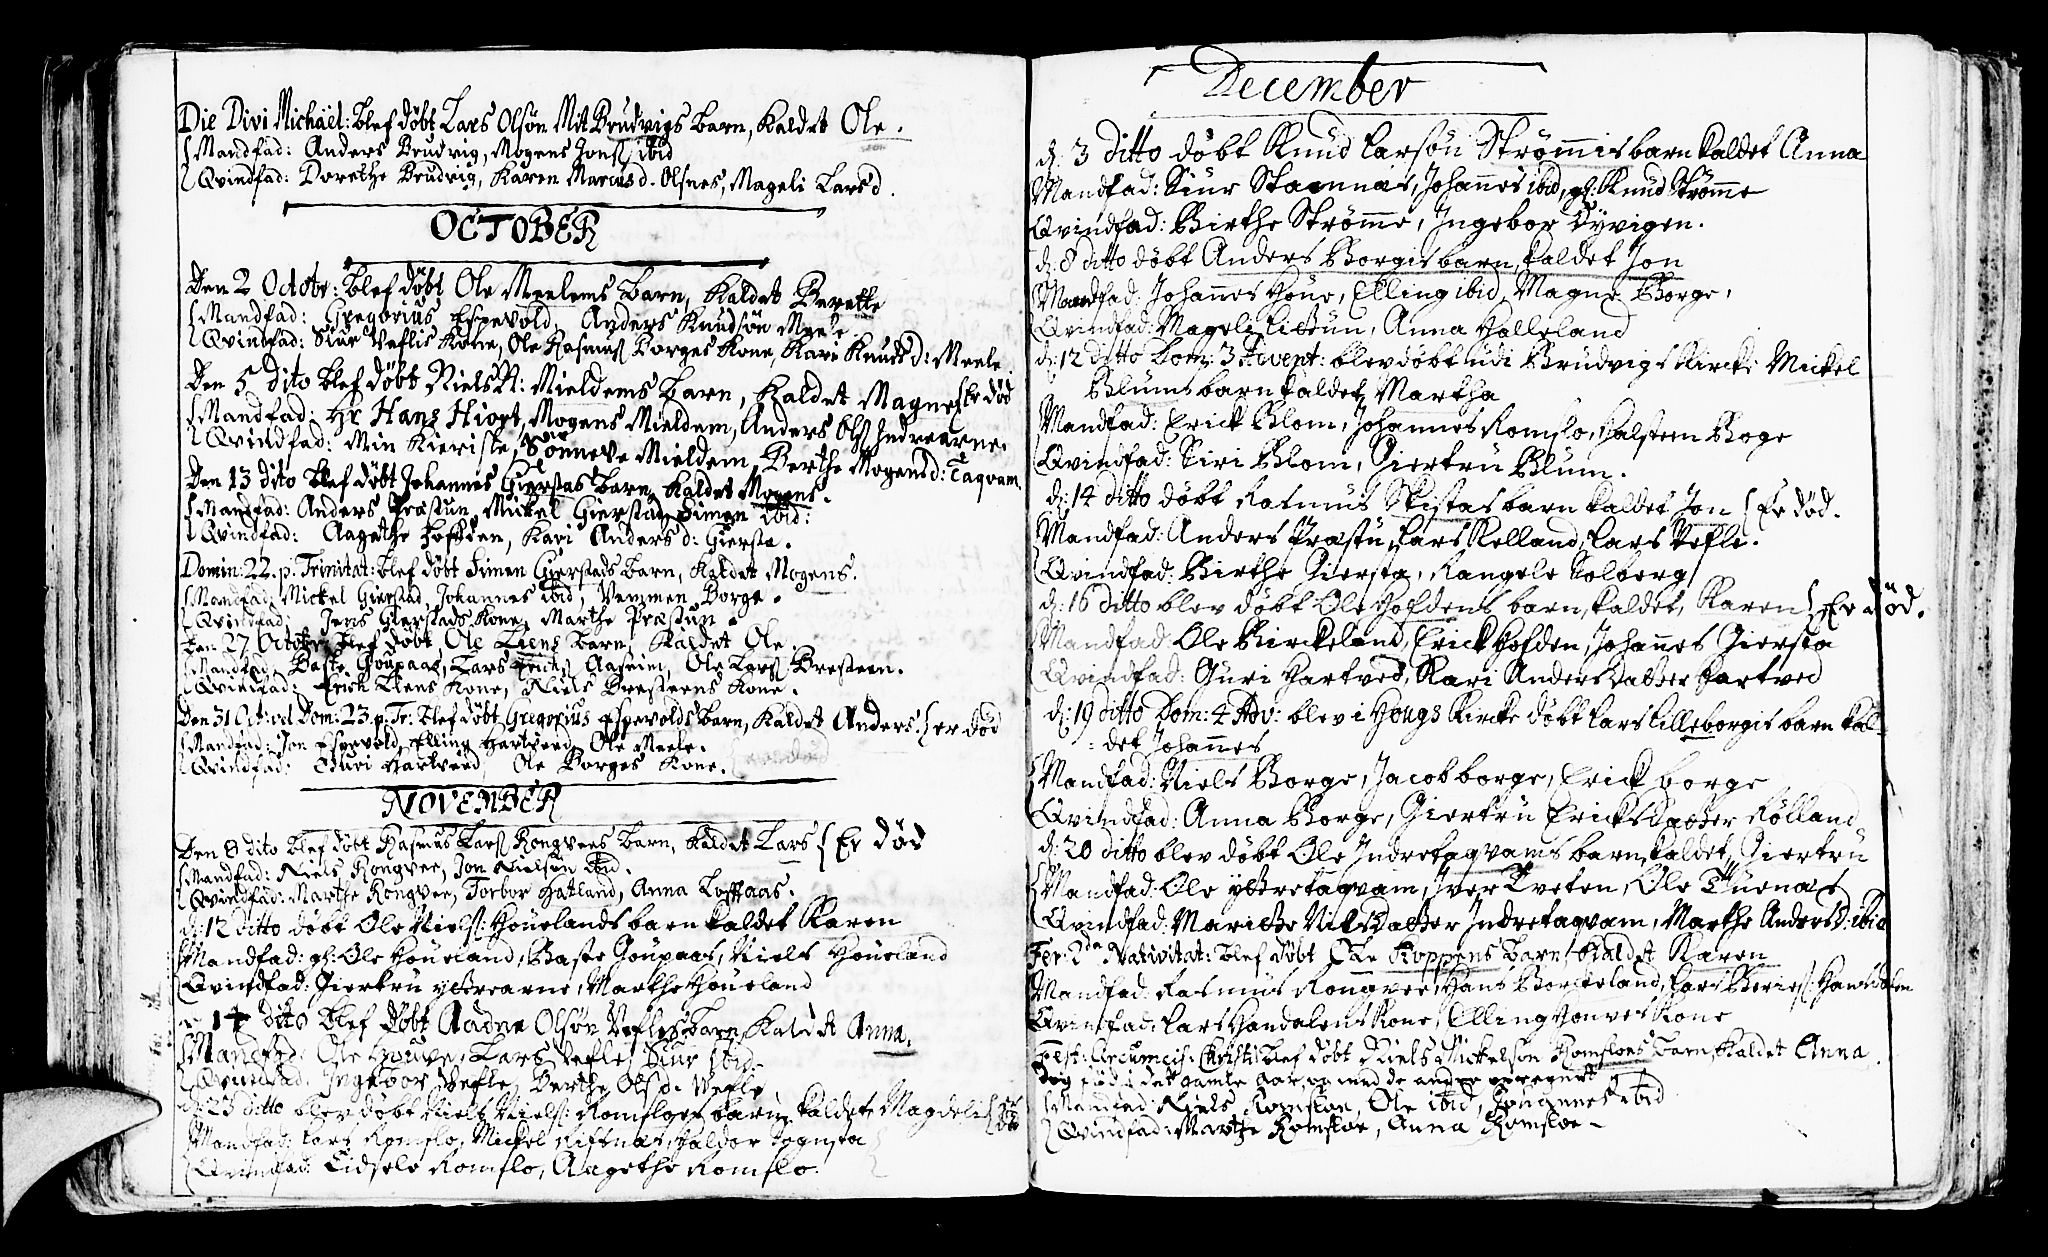 Die Divi Michaël: blef døbt Lars Olsøn Mit Brudvigs barn, kaldet Ole.
Mandfad: Anders Brudvig, Mogens Jons: ibid
Qvindfad: Dorethe Brudvig, Karen Marcus d. Olsnes, Mageli Lars d.
OCTOBER
Den 2 Octobr: blef døbt Ole Meelems barn, kaldet Berette
Mandfad: Gregorius Espevold, Anders Knudsøn Meele.
Qvindfad: Siur Veflis kone, Ole Rasmus Borges kone, Kari Knuds d: Meele.
Den 5 dito blef døbt Niels A: Mieldems barn, kaldet Magne er død
Mandfad: Hr Hans Hiort, Mogens Mieldem, Anders Ols: Indrearne.
Qvindfad: Min Kieriste, Sønneve Mieldem, Berthe Mogens d: Taqvam.
Den 13 dito blef døbt Johannes Gierstas barn kaldet Mogens.
Mandfad: Anders Præstun, Mickel Giersta, Simon ibid:
Qvindfad: Aagathe Hofden, Kari Anders d: Giersta.
Domin: 22. p. Trinitat: blef døbt Simen Gierstads barn, kaldet Mogens.
Mandfad: Mickel Gierstad, Johannes ibid, Vemmen Borge.
Qvindfad: Jens Gierstads kone, Marthe Præstun.
Den 27 Octobr blef døbt Ole Tiens barn, kaldet Ole.
Mandfad: Baste Goupaas, Lars Erichs: Aaseim, Ole Lars: Bresteen.
Qvindfad: Erich Tiens kone, Niels Bresteens kone.
Den 31 Oct: vel Dom: 23. p. Tr: blef døbt Gregorius Espevolds barn, kaldet Anders. er død
Mandfad: Jon Espevold, Elling Hartveed, Ole Meele.
Qvindfad: Guri Hartveed, Ole Borges kone.
NOVEMBER
Den 8 dito blef døbt Rasmus Lars: Rongvees barn, kaldet Lars Er død
Mandfad: Niels Rongvee, Jon Nielsøn ibid.
Qvindfad: Marthe Rongvee, Torbor Hatland, Anna Loftaas.
d: 12 ditto døbt Ole Niels: Houelands barn kaldet Karen
Mandfad: gl: Ole Houeland, Baste Goupaas, Niels Houeland
Qvindfad: Giertru yttrearne, Marthe Houeland
14 dito blef døbt Aadne Olsøn Vefles barn, kaldet Anna.
Mandfad: Ole Houve, Lars Vefle, Siur ibid.
Qvindfad: Ingebor Vefle, Berthe Ols d. Vefle
d: 23 ditto blev døbt Niels Niels: Romsloes barn, kaldet Magdeli er død
Mandfad: Lars Romslo, Mickel Riftnas, Haldor Sognsta
Qvindfad: Eidsele Romslo, Aagethe Romslo.
December
d: 3 ditto døbt Knud Larsøn Strømis barn kaldet Anna
Mandfad: Siur Stamnas, Johanes ibid, gl: Knud Strøme
Qvindfad: Birthe Strøme, Ingebor Dyvigen.
d: 8 ditto døbt Anders Borgis barn, kaldet Jon
Mandfad: Johanes Houe, Elling ibid, Magne Borge.
Qvindfad: Mageli Littun, Anna Halleland
d: 12 ditto Dom: 3 Advent: blev døbt udi Brudvigs Kircke Mickel
Blums barn kaldet Martha
Mandfad: Erick Blom, Johannes Romslo, Halsteen Boge
Qvindfad: Siri Blom, Giertru Blum.
d: 14 ditto døbt Rasmus Skistas barn kaldet Jon Er død.
Mandfad: Anders Præstu, Lars Kelland, Lars Vefle.
Qvindfad: Birthe Giersta, Rangele Solberg
d: 16 ditto blev døbt Ole Hofdens barn, kaldet, Karen Er død.
Mandfad: Ole Birckeland, Erick Hofden, Johanes Giersta
Qvindfad: Guri Hartved, Kari Andersdatter Hartved
d: 19 ditto Dom: 4 Adv: blev i Hougs Kircke døbt Lars Lilleborgis barn kal-
det Johannes
Mandfad: Niels Borge, Jacob borge, Erick borge
Qvindfad: Anna Borge, Giertru Ericksdatter Rølland
d: 20 ditto blev døbt Ole Indretaqvams barn, kaldet, Giertru
Mandfad: Ole yttretaqvam, Iver Tveten, Ole Thuenæs
Qvindfad: Maritthe Nilsdatter Indretaqvam, Marthe Anders D: ibid
Fer: 2da Nativitat: blef døbt Ole Koppens barn, kaldet Karen
Mandfad: Rasmus Rongvee, Hans Borckeland, Lars Beries: Handalen
Qvindfad: Lars Handalens kone, Elling Houves kone
Fest: Circumcis: Christi blef døbt Niels Mickelsøn Romsloes barn, kaldet Anna.
dog fød i det gamle aar, og med de andre beregnet
Mandfad: Niels Romsloe, Ole ibid, Johannes ibid
Qvindfad: Marthe Romsloe, Anna Romsloe